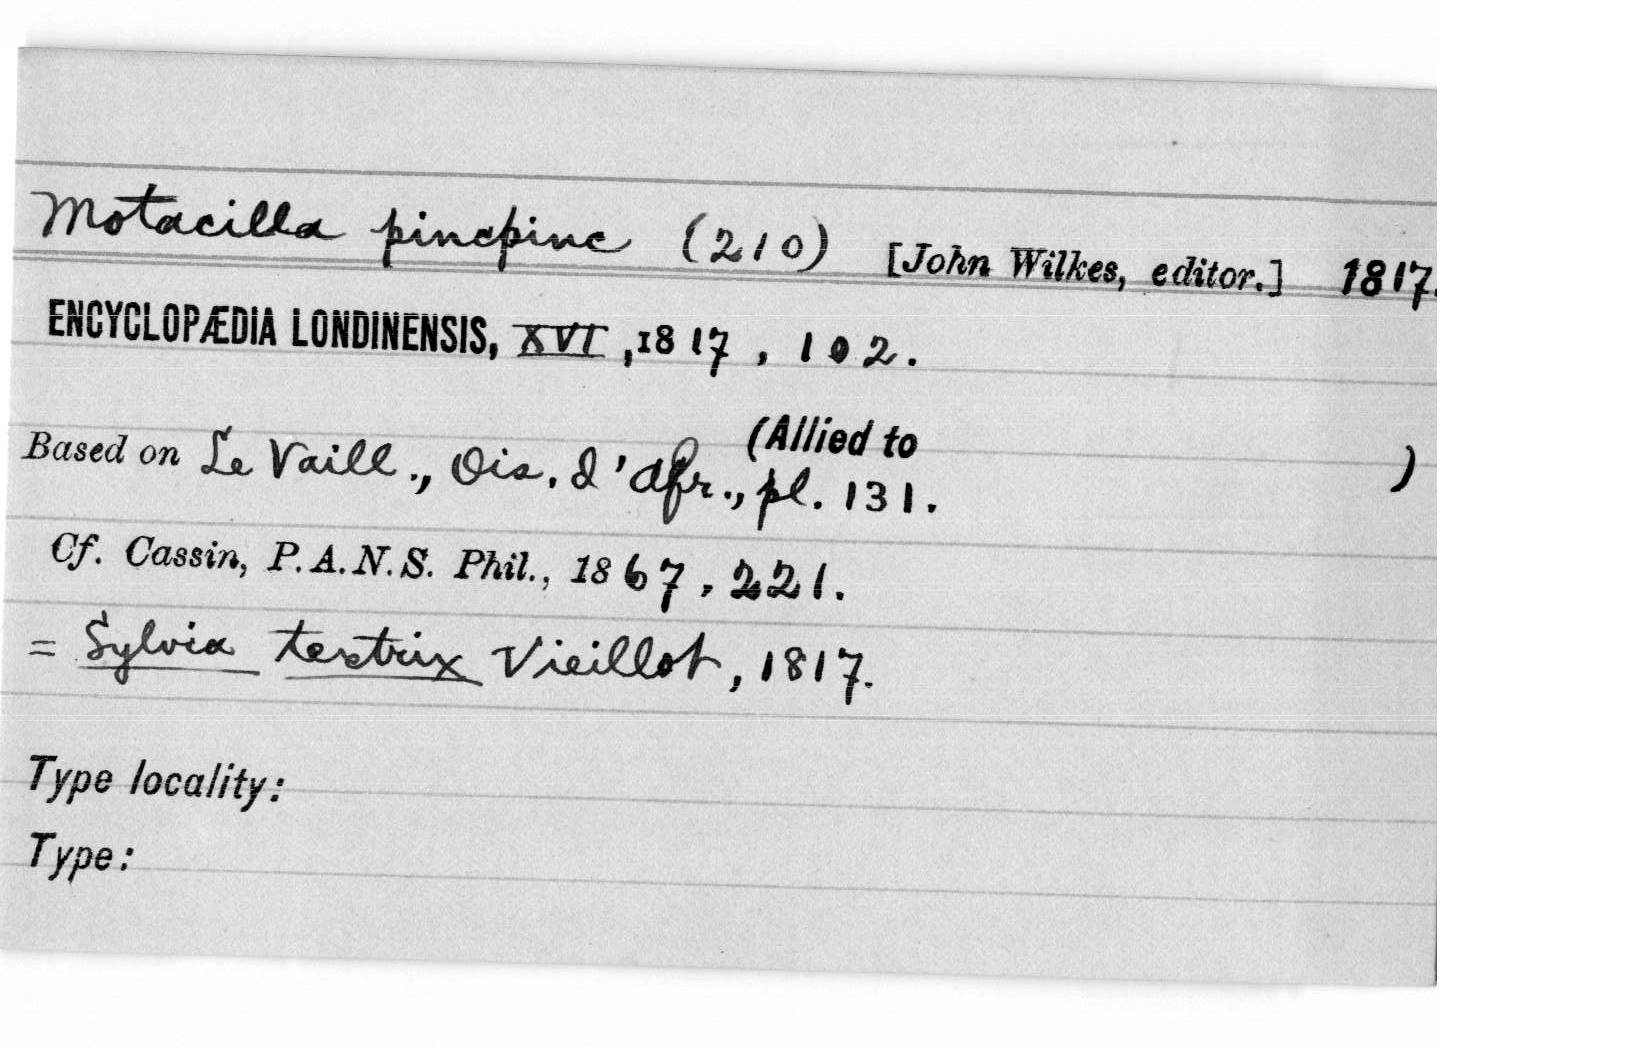 Motacilla pincpinc (210) [John Wilkes, editor.] 1817.
ENCYCLOPÆDIA LONDINENSIS, XVI, 1817, 102.
(Allied to )
Based on Le Vaill., Ois. d'Afr., pl. 131.
Cf. Cassin, P.A.N.S. Phil., 1867, 221.
= Sylvia textrix Vieillot, 1817.
Type locality:
Type: